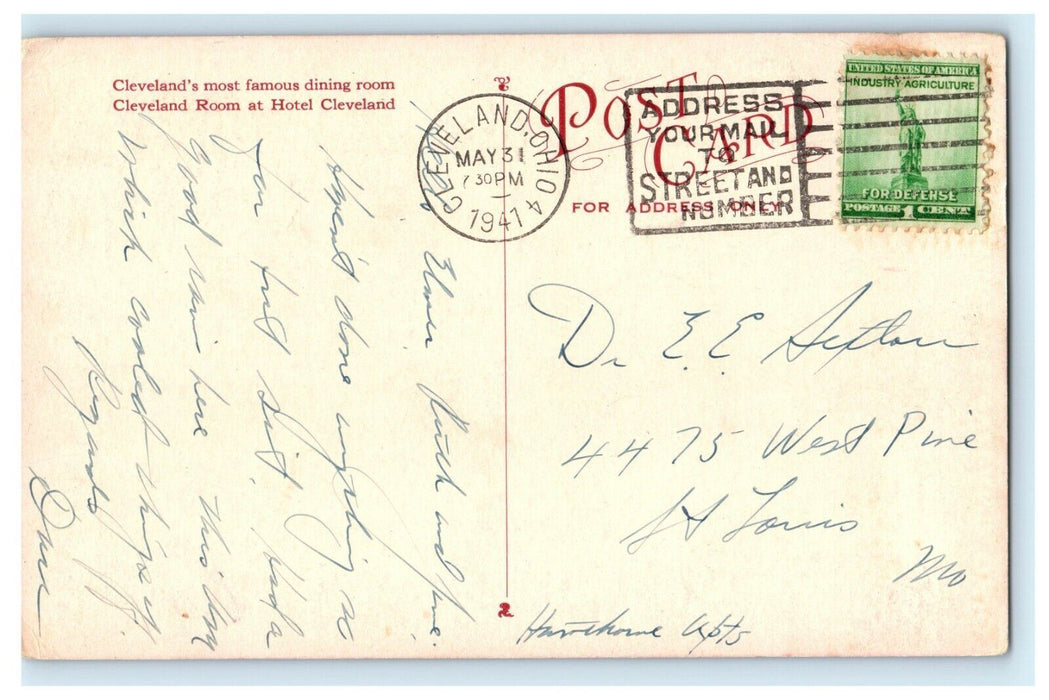 Cleveland's most famous dining room
Cleveland Room at Hotel Cleveland
POST CARD
FOR ADDRESS ONLY
CLEVELAND, OHIO 4
MAY 31
7 30 PM
1941
ADDRESS
YOUR MAIL
TO
STREET AND
NUMBER
UNITED STATES OF AMERICA
INDUSTRY AGRICULTURE
FOR DEFENSE
POSTAGE 1 CENT
Elmer Ruth and
Haven't done anything so
far but sit. Had a
good rain here this
which cooled things off.
Regards
Dr E. E. Sexton
4475 West Pine
St Louis
Mo
Hawthorne Apts